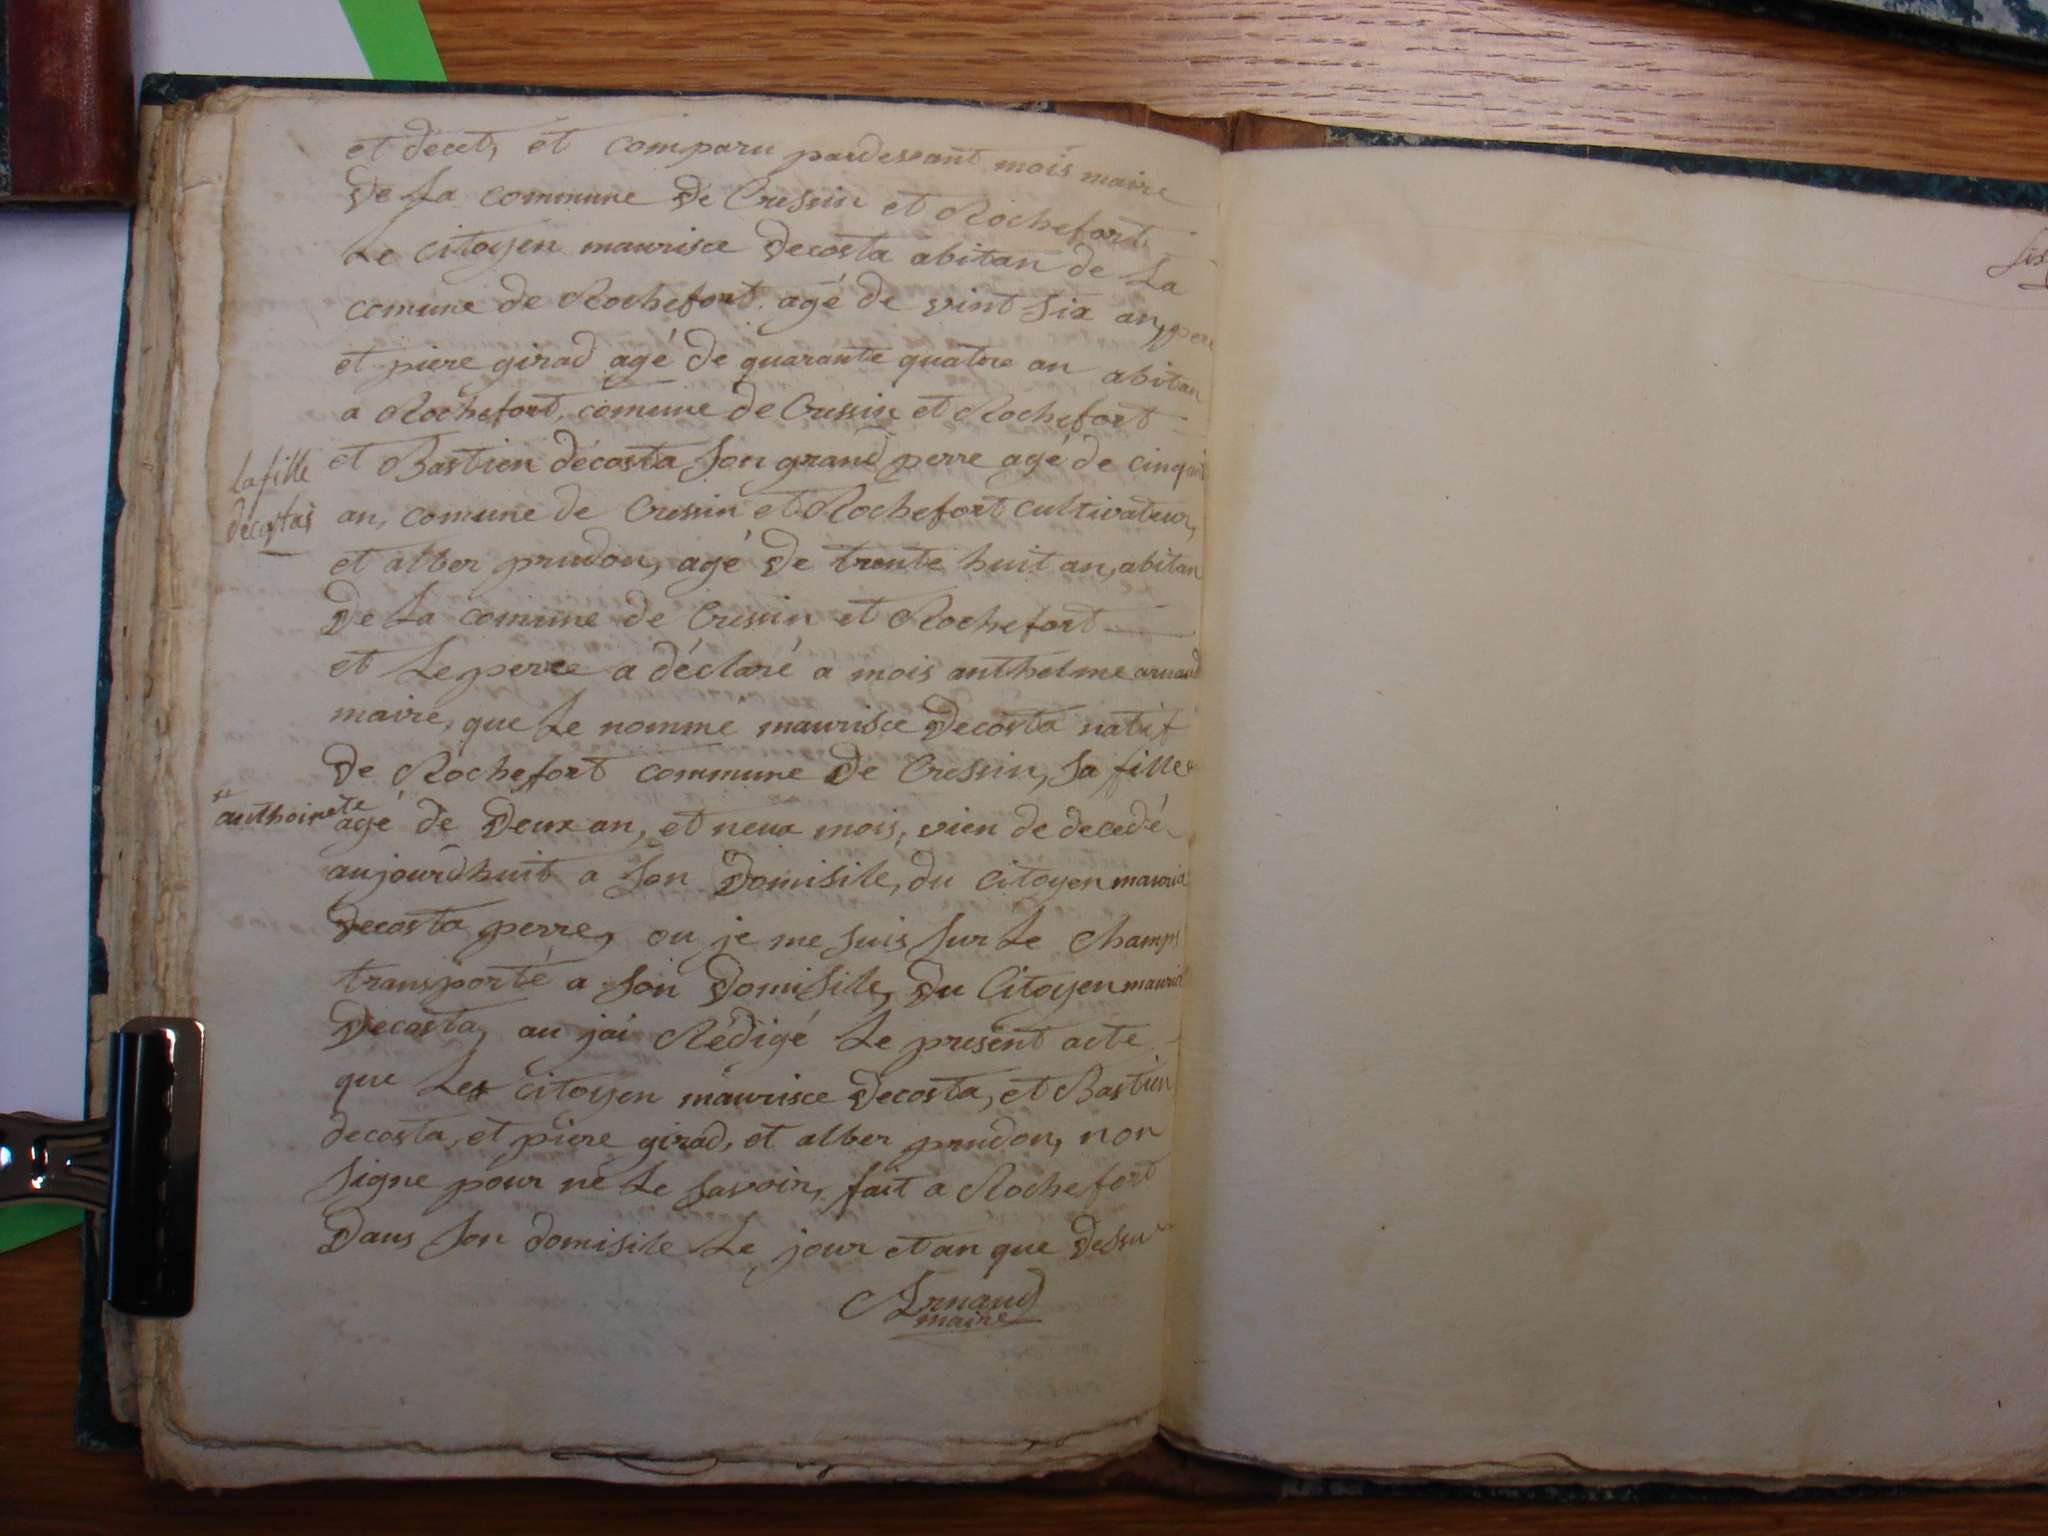 et decet, et comparu pardevant mois maire
De La commune De Cressin et Rochefort
Le citoyen maurisce Decosta abitan de La
comune de Rochefort. agé de vint six an, pere
et piere girad agé de quarante quatre an abitan
a Rochefort, comune de Cressin et Rochefort
et Bastien decosta son grand perre agé de cinqant
an, comune de Cressin et Rochefort cultivateur,
et alber prudon, agé De trente huit an, abitan
De La comune de Cressin et Rochefort
et Le perre a déclaré a mois anthelme arnaud
maire, que Le nomme maurisce Decosta natif
De Rochefort commune De Cressin, sa fille
agé de Deux an, et neux mois, vien de decedé
aujourdhuit a son Domisile, du citoyen mauris
Decosta perre, ou je me suis sur Le champs
transporté a son Domisile, Du Citoyen mauris
Decosta, au jai Rédigé Le present acte
que Les citoyen maurisce Decosta, et Bastien
decosta, et piere girad, et alber prudon, non
signe pour ne Le savoir, fait a Rochefort
Dans son domisile Le jour et an que Dessu
Arnaud
maire
la fille
decostas
anthoinete